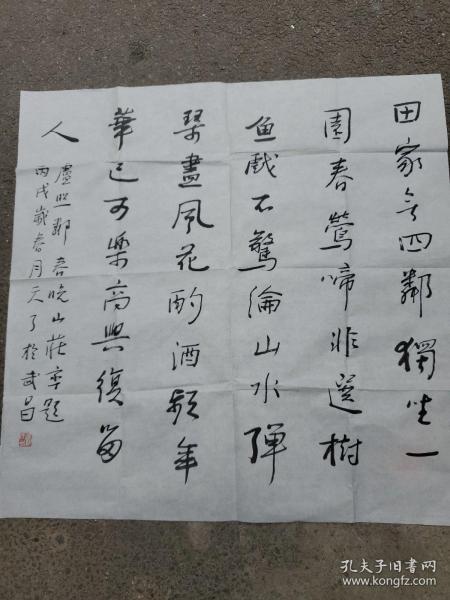 田家无四鄰獨坐一
園春鶯啼非選樹
鱼戲不驚綸山水彈
琴盡風花酌酒頻年
華已可樂高興復留
人
盧照鄰春晚山莊率題
丙戌歲春月天了於武昌
孔夫子旧书网
www.kongfz.com